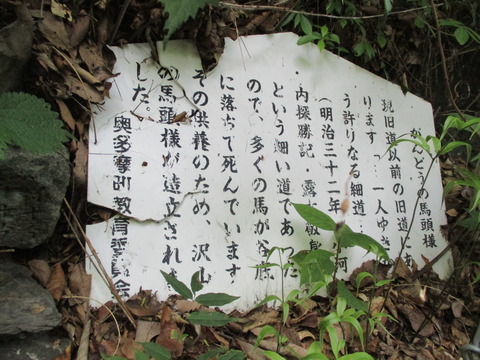 うの馬頭様
現旧道以前の旧道にあ
ります「…一人ゆき
う許りなる細道
(明治三十二年 河
内探勝記・露
という細い道であった
ので、多くの馬が谷底
に落ちて死んでいます。
その供養のため、沢山
の馬頭様が造立されま
した。
奥多摩町教育委員会